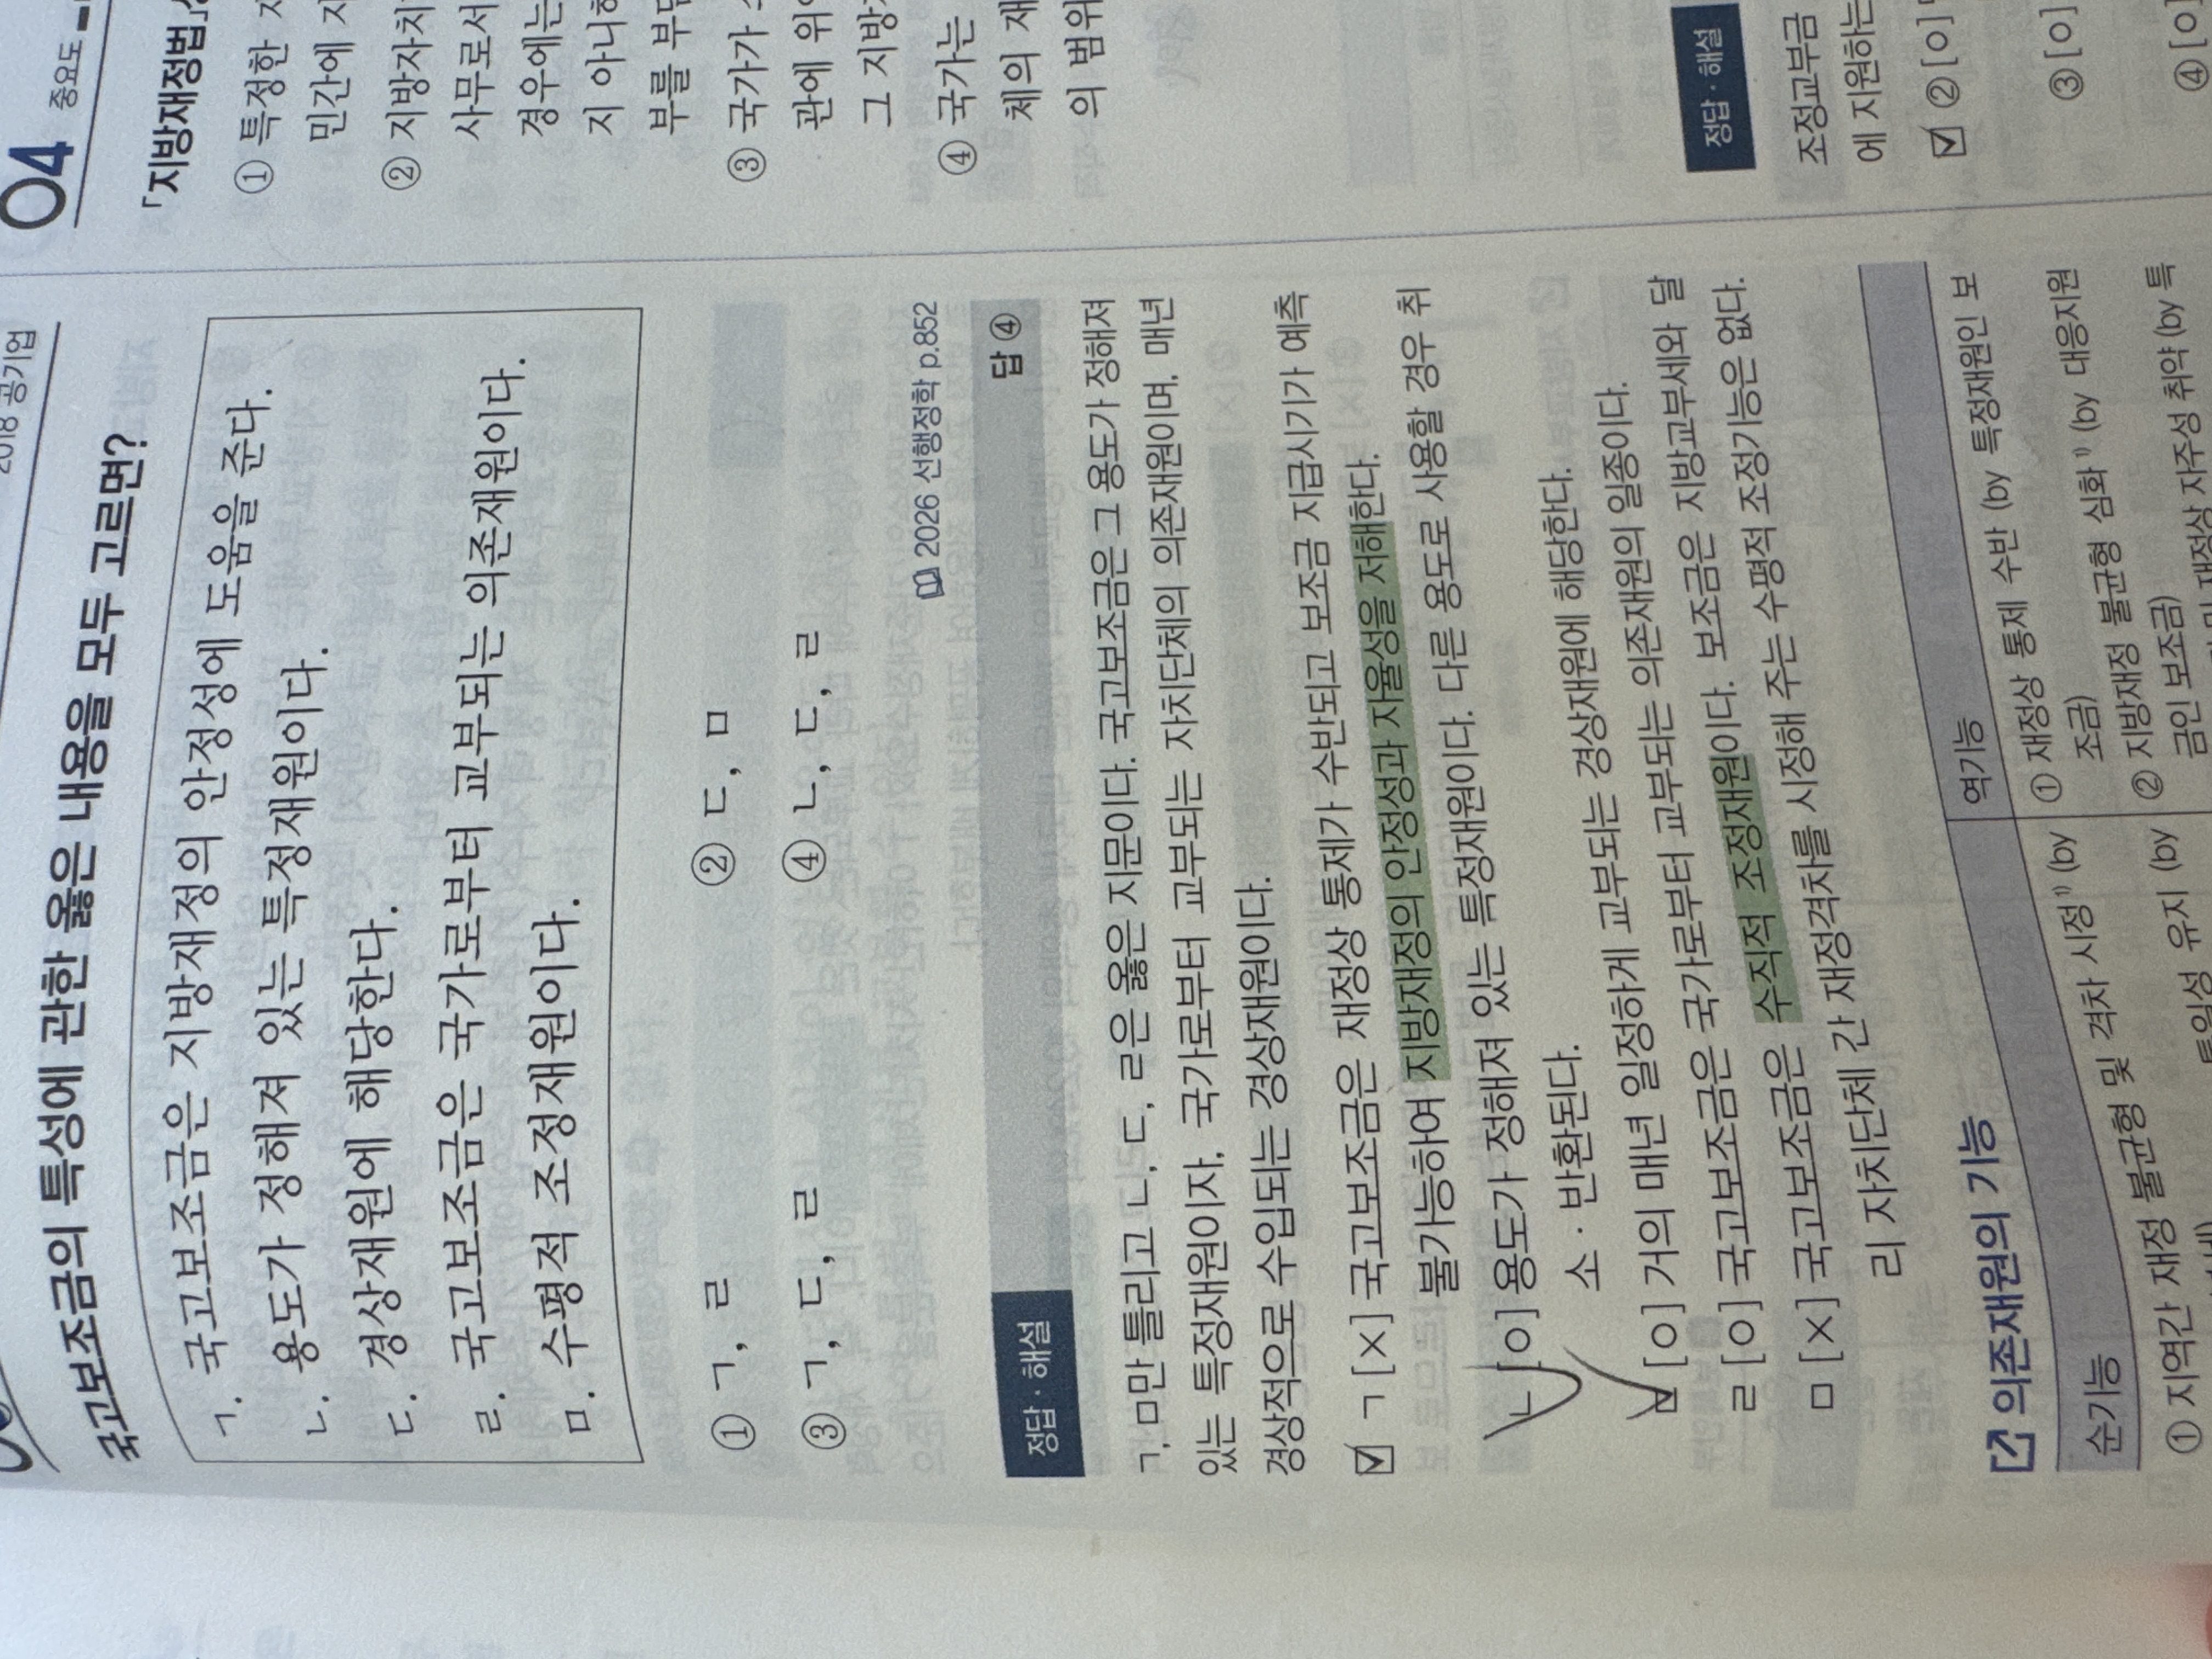 2018 공기업
국고보조금의 특성에 관한 옳은 내용을 모두 고르면?
ㄱ. 국고보조금은 지방재정의 안정성에 도움을 준다.
ㄴ. 용도가 정해져 있는 특정재원이다.
ㄷ. 경상재원에 해당한다.
ㄹ. 국고보조금은 국가로부터 교부되는 의존재원이다.
ㅁ. 수평적 조정재원이다.
① ㄱ, ㄹ ② ㄷ, ㅁ
③ ㄱ, ㄷ, ㄹ ④ ㄴ, ㄷ, ㄹ
2026 선행정학 p.852
정답·해설 답 ④
ㄱ, ㅁ만 틀리고 ㄴ, ㄷ, ㄹ은 옳은 지문이다. 국고보조금은 그 용도가 정해져
있는 특정재원이자, 국가로부터 교부되는 자치단체의 의존재원이며, 매년
경상적으로 수입되는 경상재원이다.
ㄱ [×] 국고보조금은 재정상 통제가 수반되고 보조금 지급시기가 예측
불가능하여 지방재정의 안정성과 자율성을 저해한다.
ㄴ [○] 용도가 정해져 있는 특정재원이다. 다른 용도로 사용할 경우 취
소·반환된다.
[○] 거의 매년 일정하게 교부되는 경상재원에 해당한다.
ㄹ [○] 국고보조금은 국가로부터 교부되는 의존재원의 일종이다.
ㅁ [×] 국고보조금은 수직적 조정재원이다. 보조금은 지방교부세와 달
리 자치단체 간 재정격차를 시정해 주는 수평적 조정기능은 없다.
의존재원의 기능
순기능 역기능
① 지역간 재정 불균형 및 격차 시정¹⁾ (by
① 재정상 통제 수반 (by 특정재원인 보
조금)
② 지방재정 불균형 심화¹⁾ (by 대응지원
금인 보조금)
유지 (by
재정상 자주성 취약 (by 특
04 중요도
「지방재정법」
① 특정한
민간에
② 지방자치
사무로서
경우에는
지 아니하
부를 부담
③ 국가가
관에 위
그 지방
④ 국가는
체의 재
의 범위
정답·해설
조정교부금
에 지원하는
② [○]
③ [○]
④ [○]